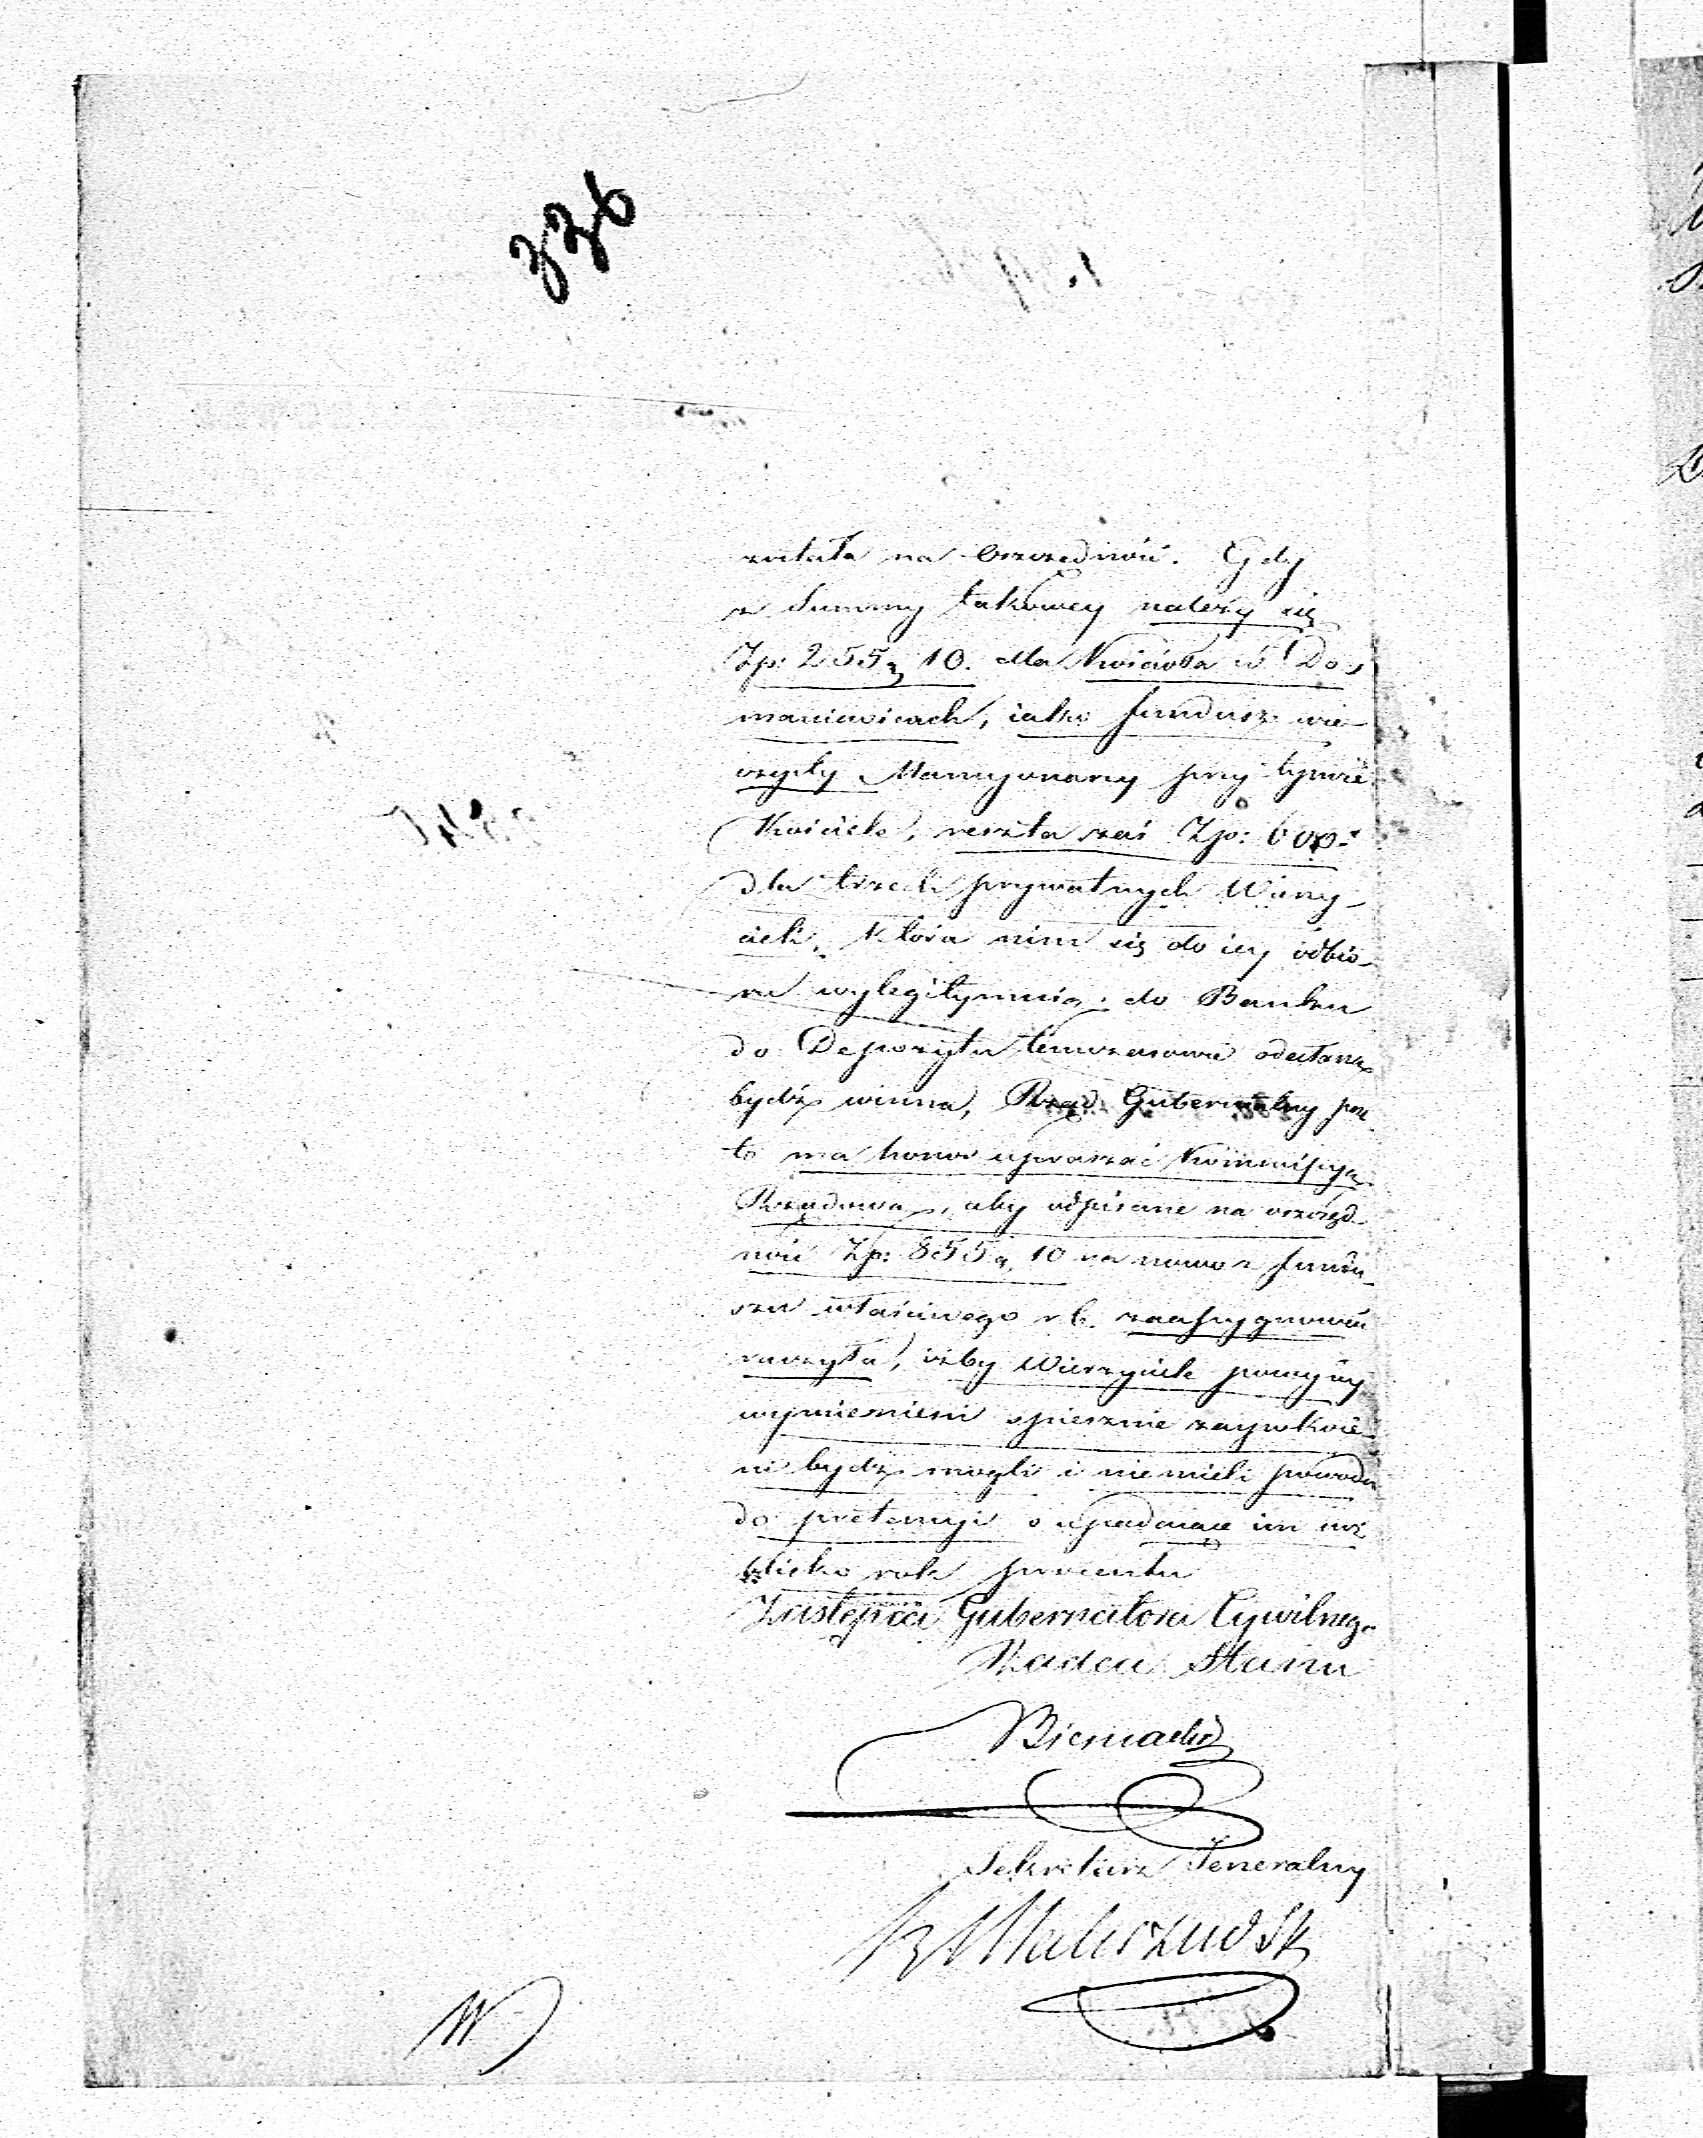 336
została na oszczędność. Gdy
z Summy takowey należy się
Zp: 255 g 10. dla Kościoła w Do,
maniewicach, iako fundusz wie-
czysty Mansyonarzy przy tymże
Kościele, reszta zaś Zp: 600.
dla trzech prywatnych Wierzy-
cieli, która nim się do iey odbio-
ru wylegitymuią, do Banku
do Depozytu tymczasowie odesłaną
bydź winna, Rząd Gubernialny prze
to ma honor upraszać Kommissyą
Rządową, aby odpisane na oszczęd-
ność Zp: 855 g. 10 na nowo z fundu-
szu właściwego r. b. zaassygnować
raczyła, iżby Wierzyciele powyżey
wymienieni spiesznie zaspokoie-
ni bydź mogli i nie mieli powodu
do pretensyi o upadaiące im
rok procentu
Zastępca Gubernatora Cywilnego
Radca Stanu
Biernacki
Sekretarz Jeneralny